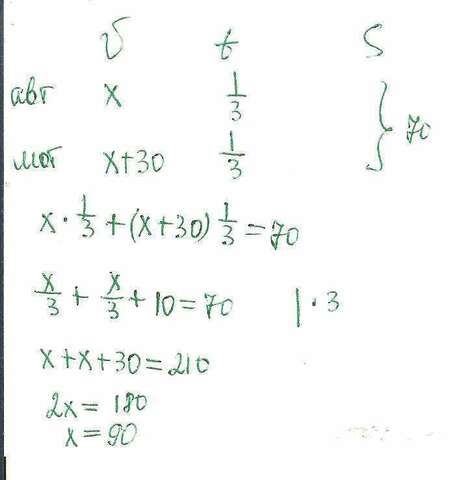 v t S
авт x 1/3
мот x+30 1/3 } 70
x · 1/3 + (x+30) 1/3 = 70
x/3 + x/3 + 10 = 70 | · 3
x+x+30=210
2x = 180
x = 90